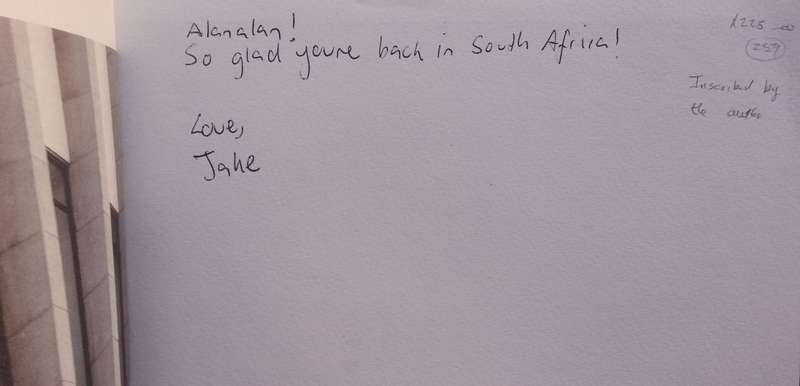 Alanalan!
So glad youre back in South Africa!
Love,
Jake
R225.00
259
Inscribed by
the author